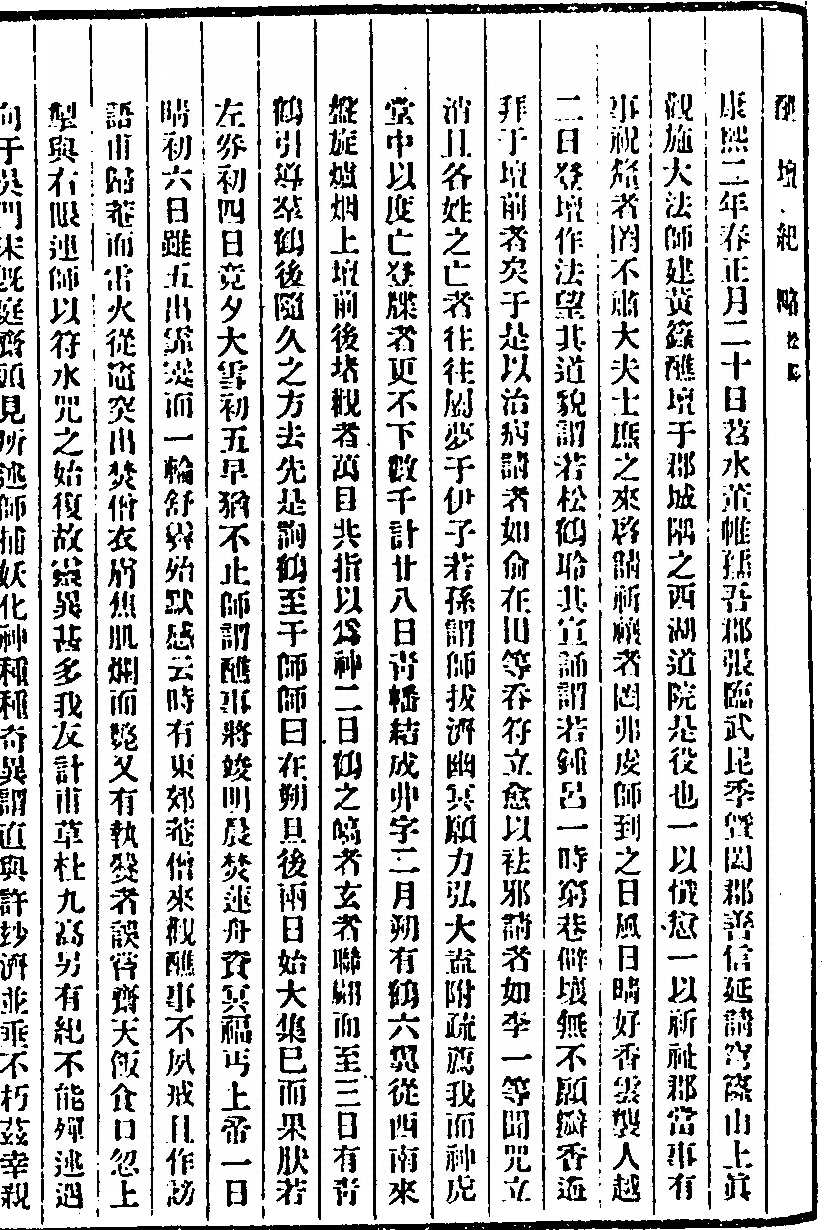 醮壇紀略松馬
康熙二年春正月二十日苕水董帷孺吾郡張臨武昆季暨閤郡善信延請穹窿山上眞
觀施大法師建黃籙醮壇于郡城隅之西湖道院是役也一以懺愆一以祈祉郡當事有
事祝釐者罔不肅大夫士庶之來啓請祈禳者罔弗虔師到之日風日晴好香雲襲人越
二日登壇作法望其道貌謂若松鶴聆其宣誦謂若鍾呂一時窮巷僻壤無不願瓣香進
拜于壇前者矣于是以治病請者如俞在田等吞符立愈以袪邪請者如李一等聞咒立
消且各姓之亡者往往夢于伊子若孫謂師拔濟幽冥願力弘大盍附疏薦我而神虎
堂中以度亡登牒者更不下數千計廿八日靑幡結成卍字二月朔有鶴六翼從西南來
盤旋爐烟上壇前後堵觀者萬目共指以爲神二日鶴之縞者玄者聯翩而至三日有靑
鶴引導羣鶴後隨久之方去先是詢鶴至于師師曰在朔旦後兩日始大集已而果朕若
左劵初四日竟夕大雪初五早猶不止師謂醮事將竣明晨焚蓮舟資冥福丐上帝一日
晴初六日雖五出霏霙而一輪舒昇殆默感云時有東郊菴僧來觀醮事不夙戒且作謗
語甫歸菴而雷火從竈突出焚僧衣屑焦肌爛而斃又有執爨者誤嘗齋天飯食口忽上
掣與右眼連師以符水咒之始復故靈異甚多我友計甫草杜九高另有紀不能殫述遇
向于吳門宋旣庭齋頭見所述師捕妖化神種種奇異謂直與許抄濟並垂不朽茲幸親